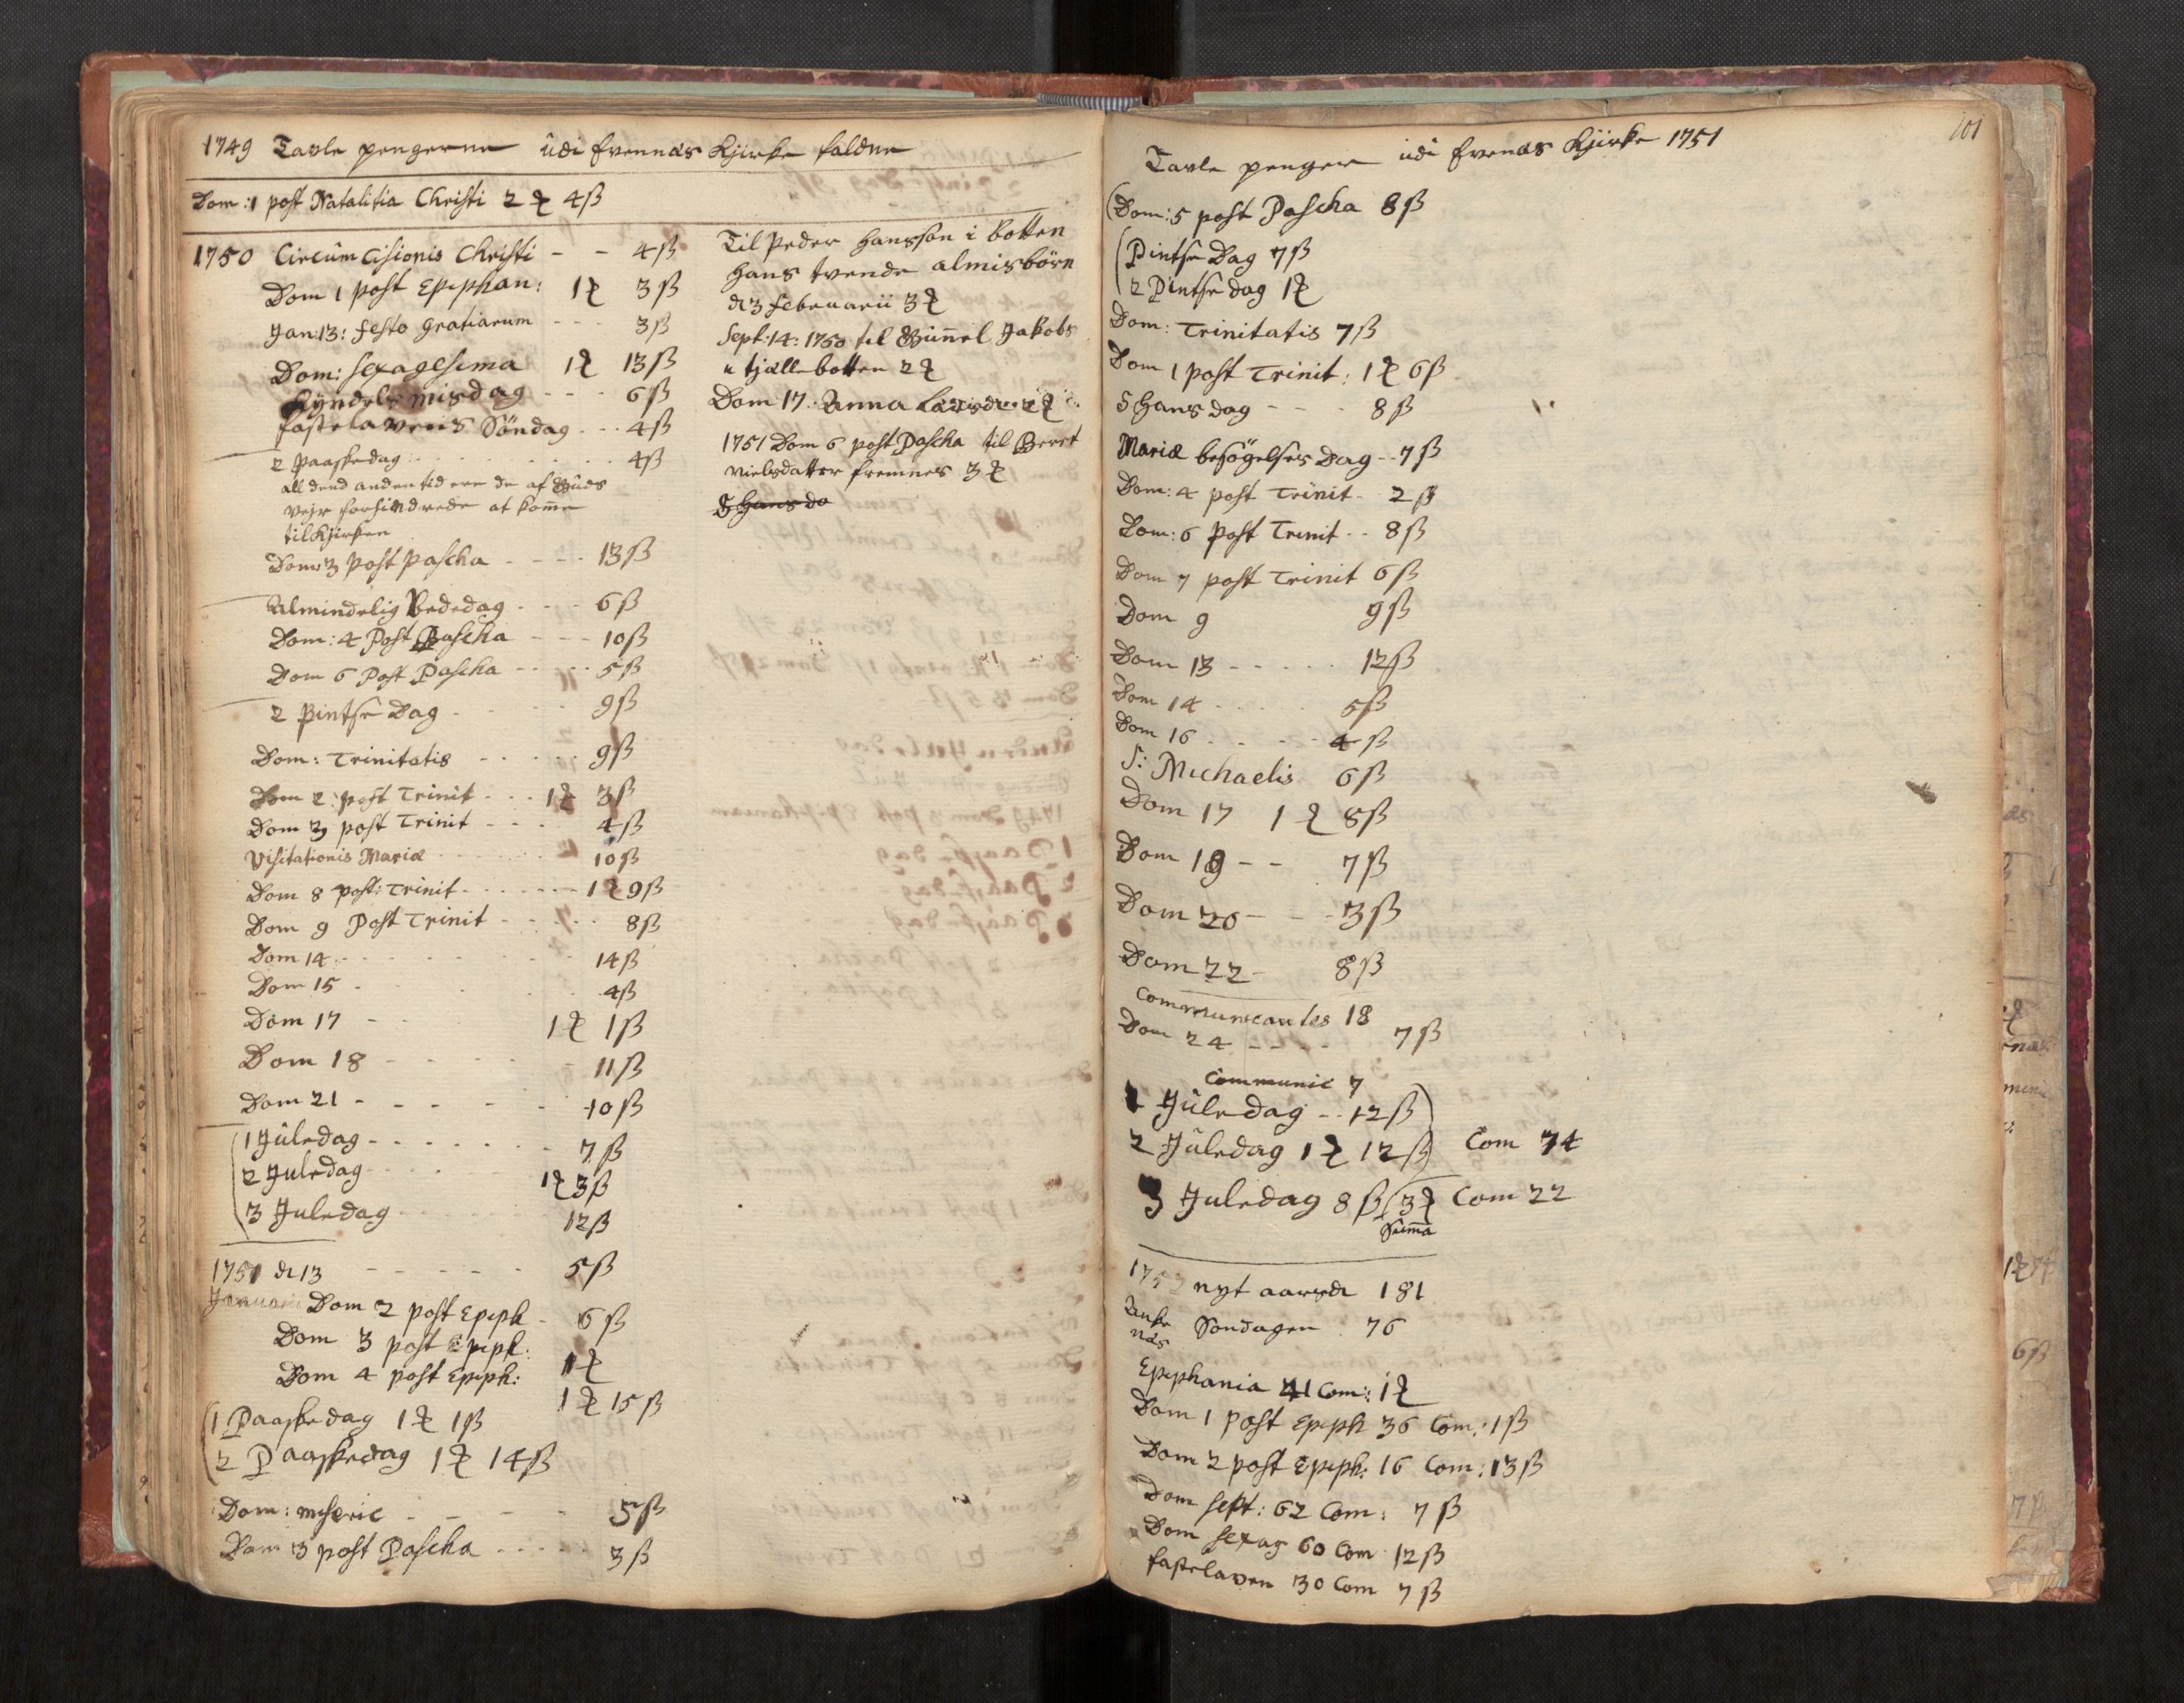 1749 Tavle pengerne udi Evennæs Kjirke faldne
Dom: 1 post Natalitia Christi 2 ₰ 4 ß
1750 Circumcisionis Christi - - 4 ß
Dom 1 post Epiphan: 1 ₰ 3 ß
Jan: 13: festo gratiarum - - - 3 ß
Dom: Sexagesima 1 ₰ 13 ß
Kyndelsmisdag - - - 6 ß
fastelavens Söndag - - - 4 ß
2 paaskedag - - - 4 ß
all dend anden tid ere de af Guds
vejr forhindrede at komme
til Kjirken
Dom: 3 post pascha - - - - 13 ß
Almindelig Bededag - - - - 6 ß
Dom: 4 Post Pascha - - - - 10 ß
Dom 6 Post Pascha - - - - 5 ß
2 Pintse Dag - - - - 9 ß
Dom: Trinitatis - - - - 9 ß
Dom 2: post Trinit - - - 1 ₰ 3 ß
Dom 3 post Trinit - - - - 4 ß
Visitationis Mariæ - - - - 10 ß
Dom 8 post: Trinit - - - - 1 ₰ 9 ß
Dom 9 Post Trinit - - - - 8 ß
Dom 14 - - - - 14 ß
Dom 15 - - - - 4 ß
Dom 17 - - 1 ₰ 1 ß
Dom 18 - - - - 11 ß
Dom 21 - - - - - 10 ß
1 Juledag - - - - - - 7 ß
2 Juledag - - - - 1 ₰ 3 ß
3 Juledag - - - - 12 ß
1751 d 13 - - - - - 5 ß
Januarii Dom 2 post Epiph - 6 ß
Dom 3 post Epiph:
Dom 4 post Epiph: 1 ₰
1 ₰ 15 ß
1 Paaskedag 1 ₰ 1 ß
2 Paaskedag 1 ₰ 14 ß
Dom: miseric - - - - 5 ß
Dom 3 post Pascha - - - - - 3 ß
Til Peder Hanssøn i botten
hans tvende almisbörn
d 3 februarii 3 ₰
Sept: 14: 1750 til Gunnel Jakobs
i tjællebotten 2 ₰
Dom 17: Anna
1751 Dom 6 post Pascha til Beret
Nielsdatter fremnes 3 ₰
S Hans da
101
Tavle penger udi Evenæs Kjirke 1751
Dom: 5 post Pascha 8 ß
Pintse Dag 7 ß
2 Pintse dag 1 ₰
Dom: Trinitatis 7 ß
Dom 1 post Trinit: 1 ₰ 6 ß
S Hans dag - - - 8 ß
Mariæ besögelses Dag - - 7 ß
Dom: 4 post Trinit - 2 ß
Dom: 6 post Trinit - - 8 ß
Dom 7 post Trinit 6 ß
Dom 9 9 ß
Dom 13 - - - - - 12 ß
Dom 14 - - - - 5 ß
Dom 16 - - - - 4 ß
S: Michaelis 6 ß
Dom 17 1 ₰ 8 ß
Dom 19 - - 7 ß
Dom 20 - - - 3 ß
Dom 22 - 8 ß
Communicantes 18
Dom 24 - - - - 7 ß
Communic 7
1 Juledag - - 12 ß
2 Juledag 1 ₰ 12 ß Com 74
3 Juledag 8 ß 3 ₰ Com 22
Summa
1752 nyt aarsd 181
Anke
næs Söndagen 76
Epiphania 41 Com: 1 ₰
Dom 1 post Epiph 36 Com: 1 ß
Dom 2 post Epiph: 16 Com: 13 ß
Dom Sept: 62 Com: 7 ß
Dom Sexag 60 Com 12 ß
fastelaven 30 Com 7 ß